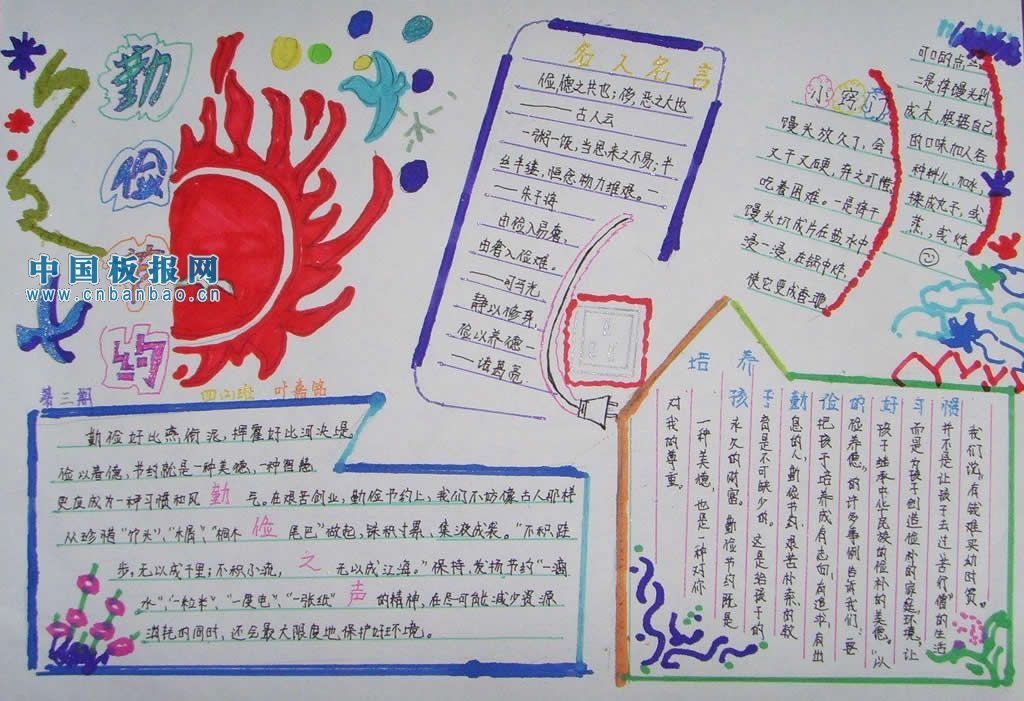 勤
俭
节
约
中国板报网
www.cnbanbao.cn
第二期
四(2)班
叶嘉铭
名人名言
俭,德之共也;侈,恶之大也
——古人云
一粥一饭,当思来之不易;半
丝半缕,恒念物力维艰。—
—朱子涛
由俭入易奢,
由奢入俭难。
—司马光
静以修身,
俭以养德—
—诸葛亮
小窍门
馒头放久了,会
又干又硬,弃之可惜,
吃着困难。一是将干
馒头切成片在盐水中
浸一浸,在锅中炸,
使它变成香地
可口的点
二是将馒头剁
成末,根据自己
的口味加入各
种料儿,加水,
揉成丸子,或
蒸,或炸
勤俭之声
勤俭好比燕衔泥,挥霍好比河决堤。
俭以养德,节约就是一种美德,一种智慧
更应成为一种习惯和风气。在艰苦创业,勤俭节约上,我们不妨像古人那样
从珍惜“竹头”、“木屑”、“桐木尾巴”做起,铢积寸累、集液成裘。“不积跬
步,无以成千里;不积小流,无以成江海。”保持、发扬节约“一滴
水”、“一粒米”、“一度电”、“一张纸”的精神,在尽可能减少资源
消耗的同时,还会最大限度地保护好环境。
培养孩子勤俭的好习惯
我们说“有钱难买幼时贫。”
并不是让孩子去过“苦行僧”的生活
而是为孩子创造俭朴的家庭环境,让
孩子继承中华民族的俭朴的美德。“以
俭养德”的许多事例告诉我们:要
把孩子培养成有志向、有追求、有出
息的人,勤俭节约、艰苦朴素的教
育是不可缺少的。这是给孩子的
永久的财富。勤俭节约既是
一种美德,也是一种对你
对我的尊重。